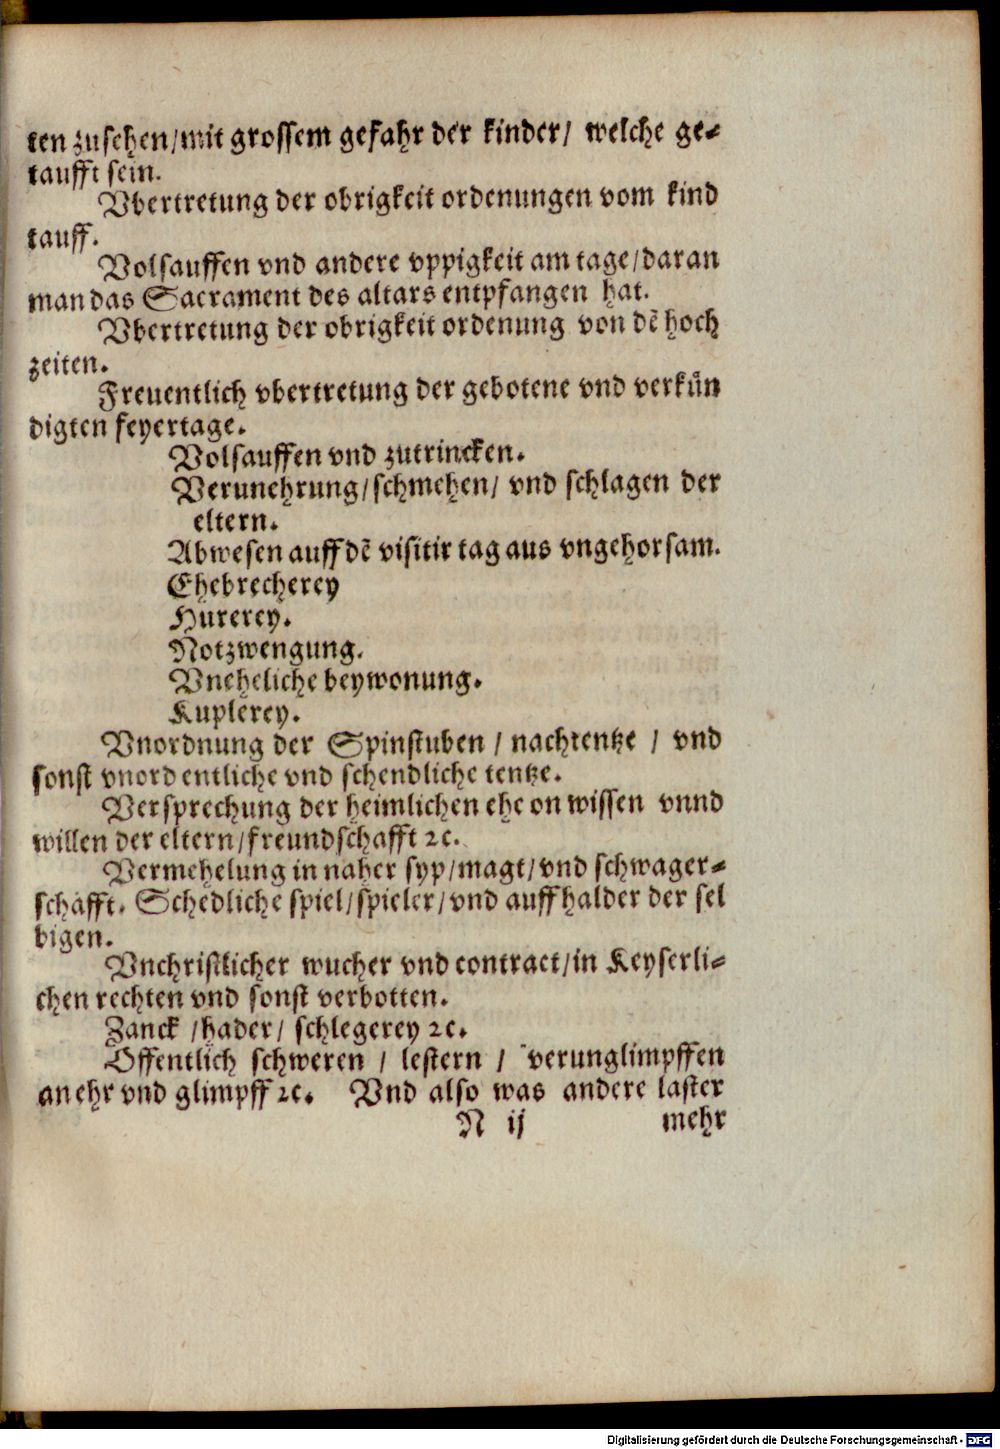 ten zusehen/mit grossem gefahr der kinder/ welche ge-
taufft sein.
Vbertretung der obrigkeit ordenungen vom kind
tauff.
Volsauffen vnd andere vppigkeit am tage/daran
man das Sacrament des altars entpfangen hat.
Vbertretung der obrigkeit ordenung von dē hoch
zeiten.
Freuentlich vbertretung der gebotene vnd verkün
digten feyertage.
Volsauffen vnd zutrincken.
Verunehrung/schmehen/ vnd schlagen der
eltern.
Abwesen auff dē visitir tag aus vngehorsam.
Ehebrecherey
Hurerey.
Notzwengung.
Vneheliche beywonung.
Kuplerey.
Vnordnung der Spinstuben / nachtentze / vnd
sonst vnordentliche vnd schendliche tentze.
Versprechung der heimlichen ehe on wissen vnnd
willen der eltern/freundschafft ꝛc.
Vermehelung in naher syp/magt/vnd schwager-
schafft. Schedliche spiel/spieler/vnd auffhalder der sel
bigen.
Vnchristlicher wucher vnd contract/in Keyserli-
chen rechten vnd sonst verbotten.
Zanck /hader/ schlegerey ꝛc.
Offentlich schweren / lestern / verunglimpffen
an ehr vnd glimpff ꝛc. Vnd also was andere laster
N ij mehr
Digitalisierung gefördert durch die Deutsche Forschungsgemeinschaft - DFG